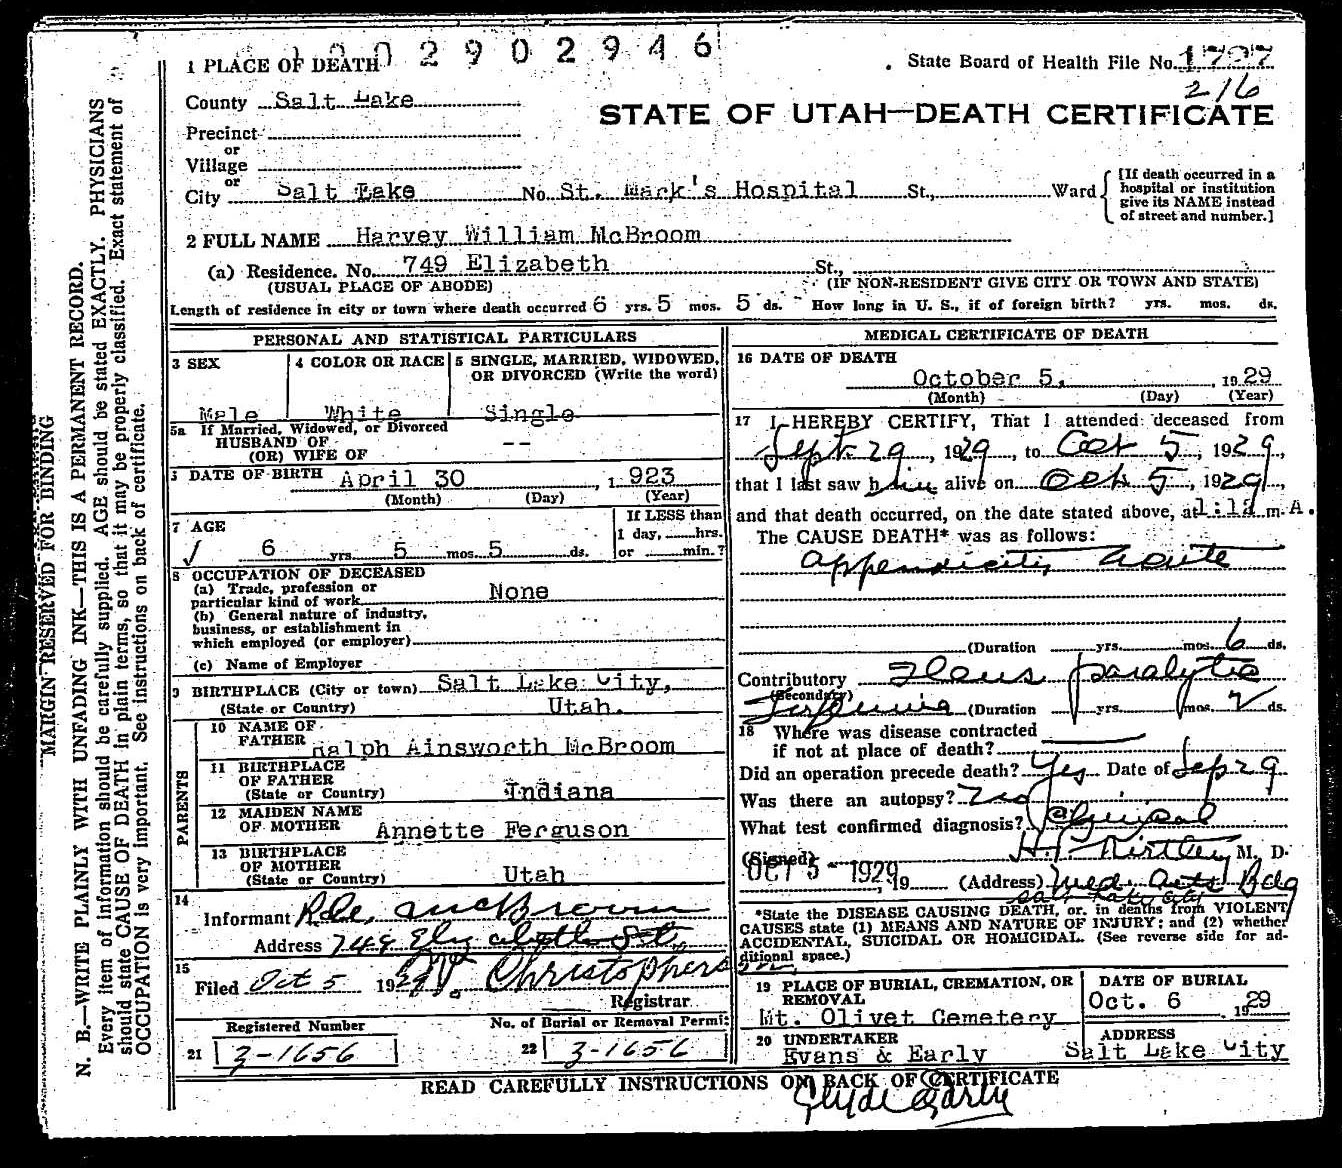 1002902946
State Board of Health File No. 1727
216
1 PLACE OF DEATH
County Salt Lake
STATE OF UTAH—DEATH CERTIFICATE
Precinct
or
Village
or
City Salt Lake No. St. Mark's Hospital St., Ward
[If death occurred in a hospital or institution give its NAME instead of street and number.]
2 FULL NAME Harvey William McBroom
(a) Residence. No. 749 Elizabeth St.,
(USUAL PLACE OF ABODE) (IF NON-RESIDENT GIVE CITY OR TOWN AND STATE)
Length of residence in city or town where death occurred 6 yrs. 5 mos. 5 ds. How long in U. S., if of foreign birth? yrs. mos. ds.
PERSONAL AND STATISTICAL PARTICULARS
3 SEX
Male
4 COLOR OR RACE
White
5 SINGLE, MARRIED, WIDOWED, OR DIVORCED (Write the word)
Single
5a If Married, Widowed, or Divorced
HUSBAND OF
(OR) WIFE OF
--
DATE OF BIRTH April 30, 1923
(Month) (Day) (Year)
7 AGE
6 yrs. 5 mos. 5 ds.
If LESS than
1 day, hrs.
or min.?
8 OCCUPATION OF DECEASED
(a) Trade, profession or
particular kind of work None
(b) General nature of industry,
business, or establishment in
which employed (or employer)
(c) Name of Employer
9 BIRTHPLACE (City or town) Salt Lake City,
(State or Country) Utah.
PARENTS
10 NAME OF
FATHER Ralph Ainsworth McBroom
11 BIRTHPLACE
OF FATHER
(State or Country) Indiana
12 MAIDEN NAME
OF MOTHER Annette Ferguson
13 BIRTHPLACE
OF MOTHER
(State or Country) Utah
14
Informant McBroom
Address 749 Elizabeth St.
15
Filed Oct 5 1929 Christophers
Registrar
Registered Number
21 3-1656
No. of Burial or Removal Permit
22 3-1656
MEDICAL CERTIFICATE OF DEATH
16 DATE OF DEATH
October 5, 1929
(Month) (Day) (Year)
17 I HEREBY CERTIFY, That I attended deceased from
Sept. 29, 1929, to Oct 5, 1929,
that I last saw him alive on Oct 5, 1929,
and that death occurred, on the date stated above, at m. A.
The CAUSE DEATH* was as follows:
Appendicitis Acute
(Duration yrs. mos. 6 ds.
Contributory Ileus paralytic
(Secondary)
(Duration yrs. mos. 2 ds.
18 Where was disease contracted
if not at place of death?
Did an operation precede death? Yes Date of Sep 29
Was there an autopsy? No
What test confirmed diagnosis? Clinical
(Signed) M. D.
OCT 5 - 1929, 19 (Address) Med. Arts Bdg
Salt Lake City
*State the DISEASE CAUSING DEATH, or, in deaths from VIOLENT
CAUSES state (1) MEANS AND NATURE OF INJURY; and (2) whether
ACCIDENTAL, SUICIDAL OR HOMICIDAL. (See reverse side for additional space.)
19 PLACE OF BURIAL, CREMATION, OR REMOVAL
Mt. Olivet Cemetery
DATE OF BURIAL
Oct. 6 1929
20 UNDERTAKER
Evans & Early
ADDRESS
Salt Lake City
READ CAREFULLY INSTRUCTIONS ON BACK OF CERTIFICATE
Clyde Early
MARGIN RESERVED FOR BINDING
N. B.—WRITE PLAINLY WITH UNFADING INK—THIS IS A PERMANENT RECORD.
Every item of information should be carefully supplied. AGE should be stated EXACTLY. PHYSICIANS
should state CAUSE OF DEATH in plain terms, so that it may be properly classified. Exact statement of
OCCUPATION is very important. See instructions on back of certificate.